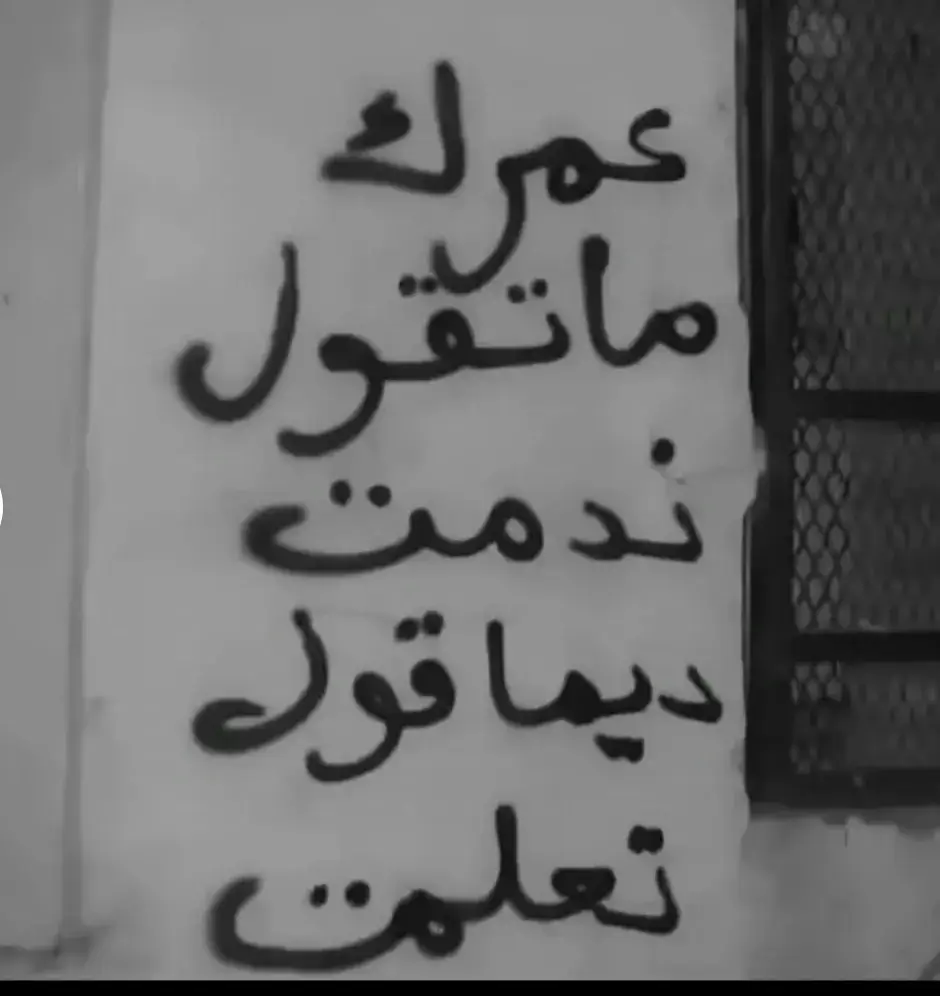 عمرك
ماتقول
ندمت
ديما قول
تعلمت